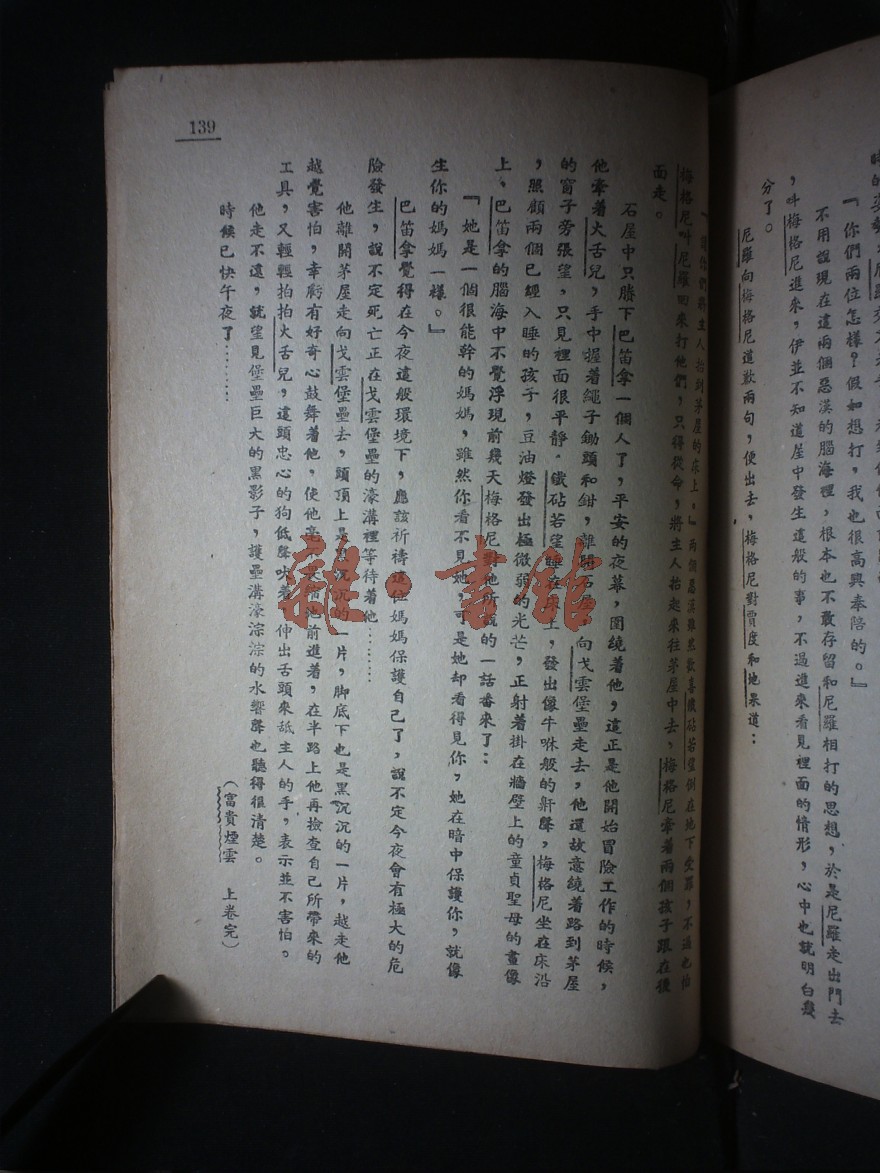 『你們兩位怎樣？假如想打，我也很高興奉陪的。』
不用說現在這兩個惡漢的腦海裡，根本也不敢存留和尼羅相打的思想，於是尼羅走出門去
，呌梅格尼進來，伊並不知道屋中發生這般的事，不過進來看見裡面的情形，心中也就明白幾
分了。
尼羅向梅格尼道歉兩句，便出去，梅格尼對賈度和地果道：
主人抬到茅屋的床上。』兩個惡漢雖然歡喜鐵砧若望倒在地下受罪，不過也怕
梅格尼呌尼羅回來打他們，只得從命，將主人抬起來往茅屋中去，梅格尼牽着兩個孩子跟在後
面走。
石屋中只賸下巴笛拿一個人了，平安的夜幕，圍繞着他，這正是他開始冒險工作的時候，
他牽着火舌兒，手中握着繩子鋤頭和鉗，離開石屋，向戈雲堡壘走去，他還故意繞着路到茅屋
的窗子旁張望，只見裡面很平靜。鐵砧若望睡在床上，發出像牛咻般的鼾聲，梅格尼坐在床沿
，照顧兩個已經入睡的孩子，豆油燈發出極微弱的光芒，正射着掛在牆壁上的童貞聖母的畫像
上，巴笛拿的腦海中不覺浮現前幾天梅格尼對他所說的一話番來了：
『她是一個很能幹的媽媽，雖然你看不見她，可是她却看得見你，她在暗中保護你，就像
生你的媽媽一樣。』
巴笛拿覺得在今夜這般環境下，應該祈禱這位媽媽保護自己了，說不定今夜會有極大的危
險發生，說不定死亡正在戈雲堡壘的濠溝裡等待着他………
他離開茅屋走向戈雲堡壘去，頭頂上是黑沉沉的一片，脚底下也是黑沉沉的一片，越走他
越覺害怕，幸虧有好奇心鼓舞着他，使他毫不 他前進着，在半路上他再檢查自己所帶來的
工具，又輕輕拍拍火舌兒，這頭忠心的狗低聲吠着，伸出舌頭來舐主人的手，表示並不害怕。
他走不遠，就望見堡壘巨大的黑影子，護壘溝濠淙淙的水響聲也聽得很清楚。
時候已快午夜了………
（富貴煙雲　上卷完）
139
雜·書館